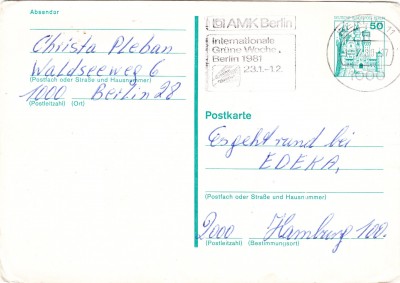 Absender
Christa Pleban
Waldseeweg 6
(Postfach oder Straße und Hausnummer)
1000 Berlin 28
(Postleitzahl) (Ort)
AMK Berlin
Internationale
Grüne Woche
Berlin 1981
23.1.-1.2.
50
Postkarte
Es geht rund bei
EDEKA,
(Postfach oder Straße und Hausnummer)
2000 Hamburg 100.
(Postleitzahl) (Bestimmungsort)